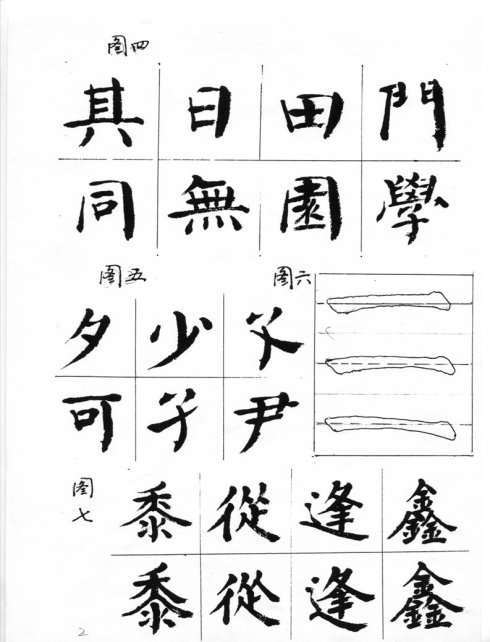 图四
其日田門
同無園學
图五 图六
夕少父
可子尹
图七
黍從逢鑫
黍從逢鑫
2